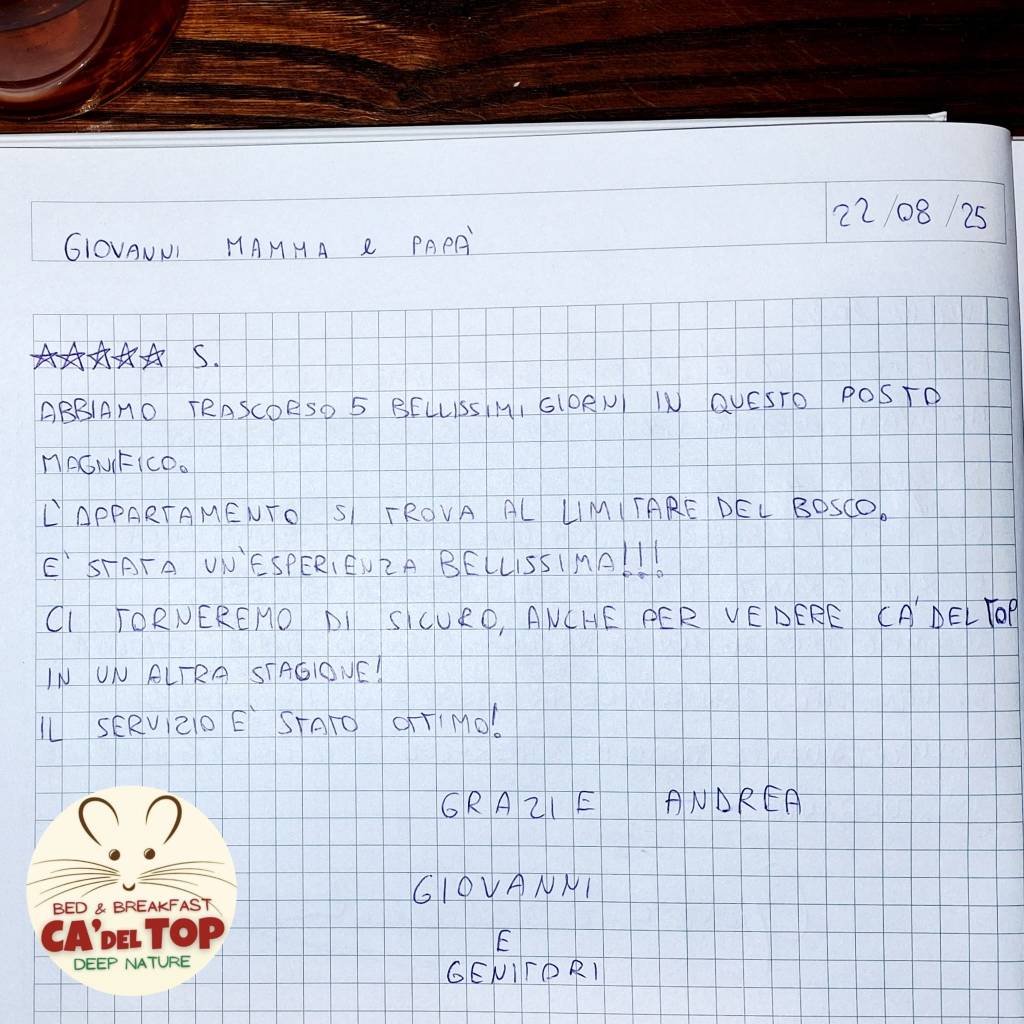 GIOVANNI MAMMA e PAPÀ
22/08/25
☆☆☆☆☆ S.
ABBIAMO TRASCORSO 5 BELLISSIMI GIORNI IN QUESTO POSTO
MAGNIFICO.
L'APPARTAMENTO SI TROVA AL LIMITARE DEL BOSCO.
E' STATA UN'ESPERIENZA BELLISSIMA!!!
CI TORNEREMO DI SICURO, ANCHE PER VEDERE CA' DEL TOP
IN UN ALTRA STAGIONE!
IL SERVIZIO E' STATO OTTIMO!
GRAZIE ANDREA
GIOVANNI
E
GENITORI
BED & BREAKFAST
CA' DEL TOP
DEEP NATURE